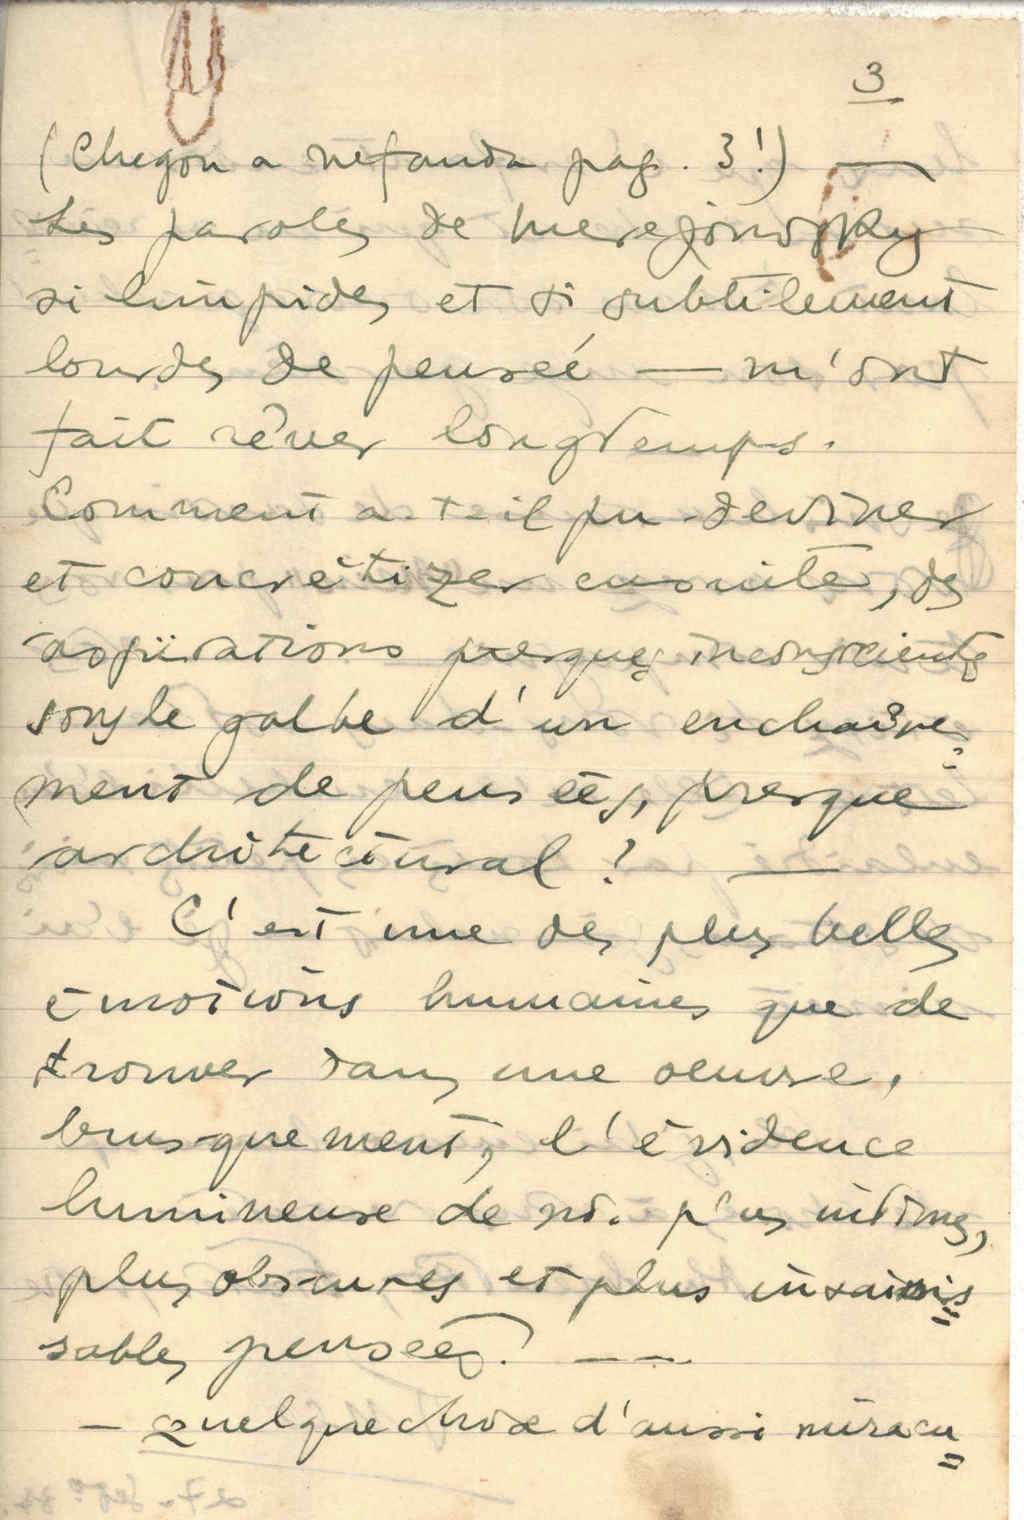 3
(Chegou a nefanda pag. 3!) —
Les paroles de Merejkowsky
si limpides et si subtilement
lourdes de pensée — m'ont
fait rêver longtemps.
Comment a-t-il pu deviner
et concrétizer ensuite, des
aspirations presques inconscientes
sous le galbe d'un enchaîne=
ment de pensées, presque
architectural? —
C'est une des plus belles
émotions humaines que de
trouver dans une oeuvre,
brusquement, l'évidence
lumineuse de nos plus intimes,
plus obscures et plus insaisis=
sables pensées! ——
— Quelque chose d'aussi miracu=